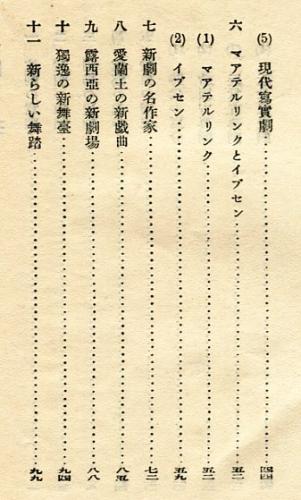 (5) 現代寫實劇……四四
六 マアテルリンクとイプセン……五二
(1) マアテルリンク……五二
(2) イプセン……五九
七 新劇の名作家……七二
八 愛蘭土の新戲曲……八五
九 露西亞の新劇場……八八
十 獨逸の新舞臺……九四
十一 新らしい舞踏……九九